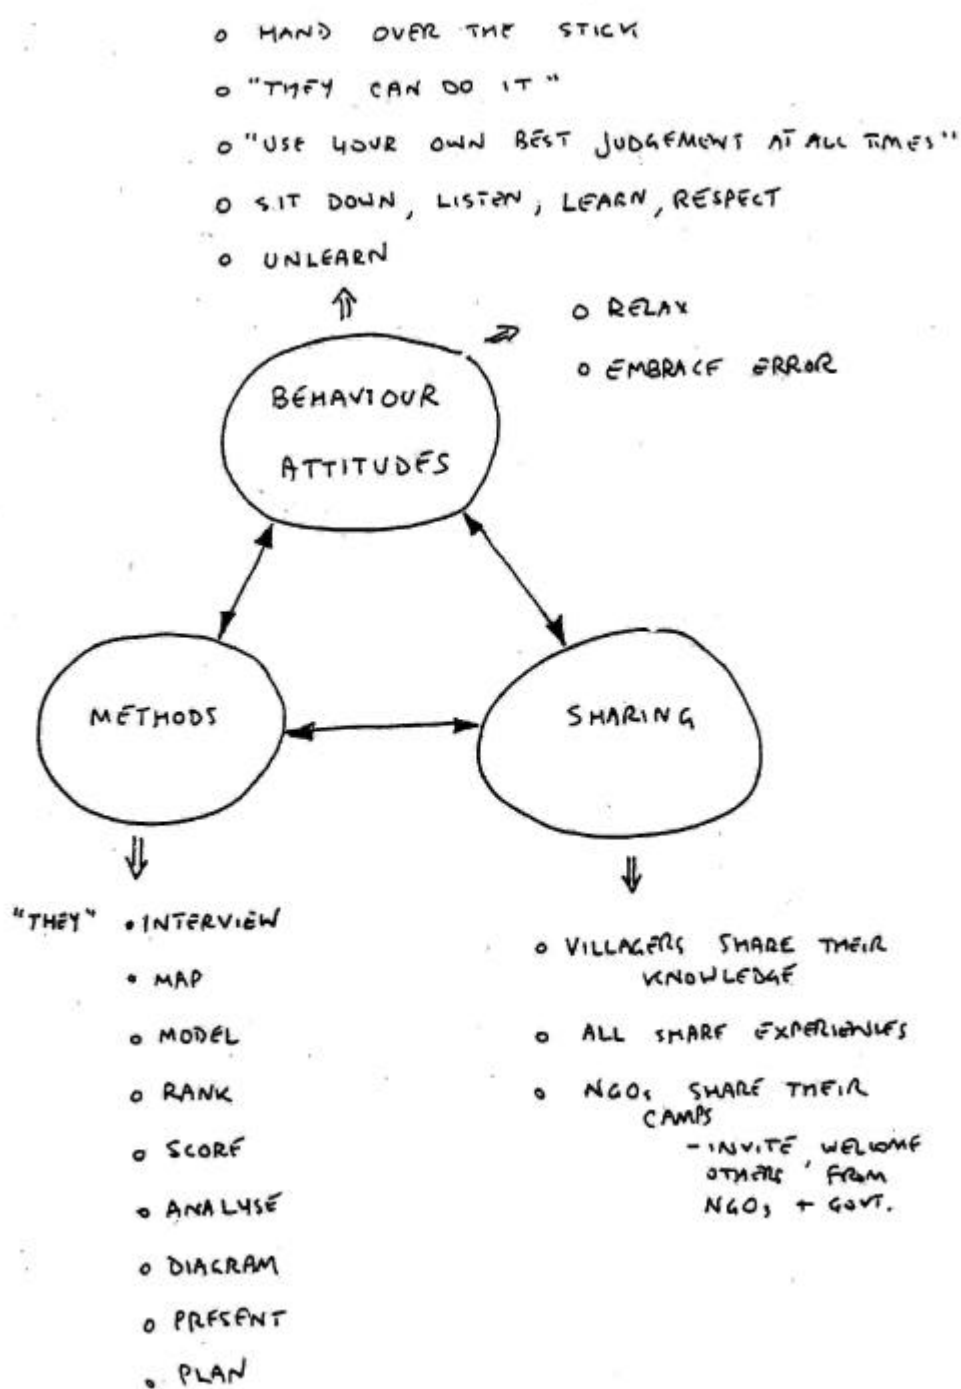 o HAND OVER THE STICK
o "THEY CAN DO IT"
o "USE YOUR OWN BEST JUDGEMENT AT ALL TIMES"
o SIT DOWN, LISTEN, LEARN, RESPECT
o UNLEARN
o RELAX
o EMBRACE ERROR
BEHAVIOUR
ATTITUDES
METHODS
SHARING
"THEY" • INTERVIEW
• MAP
o MODEL
o RANK
o SCORE
o ANALYSE
o DIAGRAM
o PRESENT
• PLAN
o VILLAGERS SHARE THEIR
KNOWLEDGE
o ALL SHARE EXPERIENCES
o NGOs SHARE THEIR
CAMPS
- INVITE, WELCOME
OTHERS FROM
NGOs + GOVT.